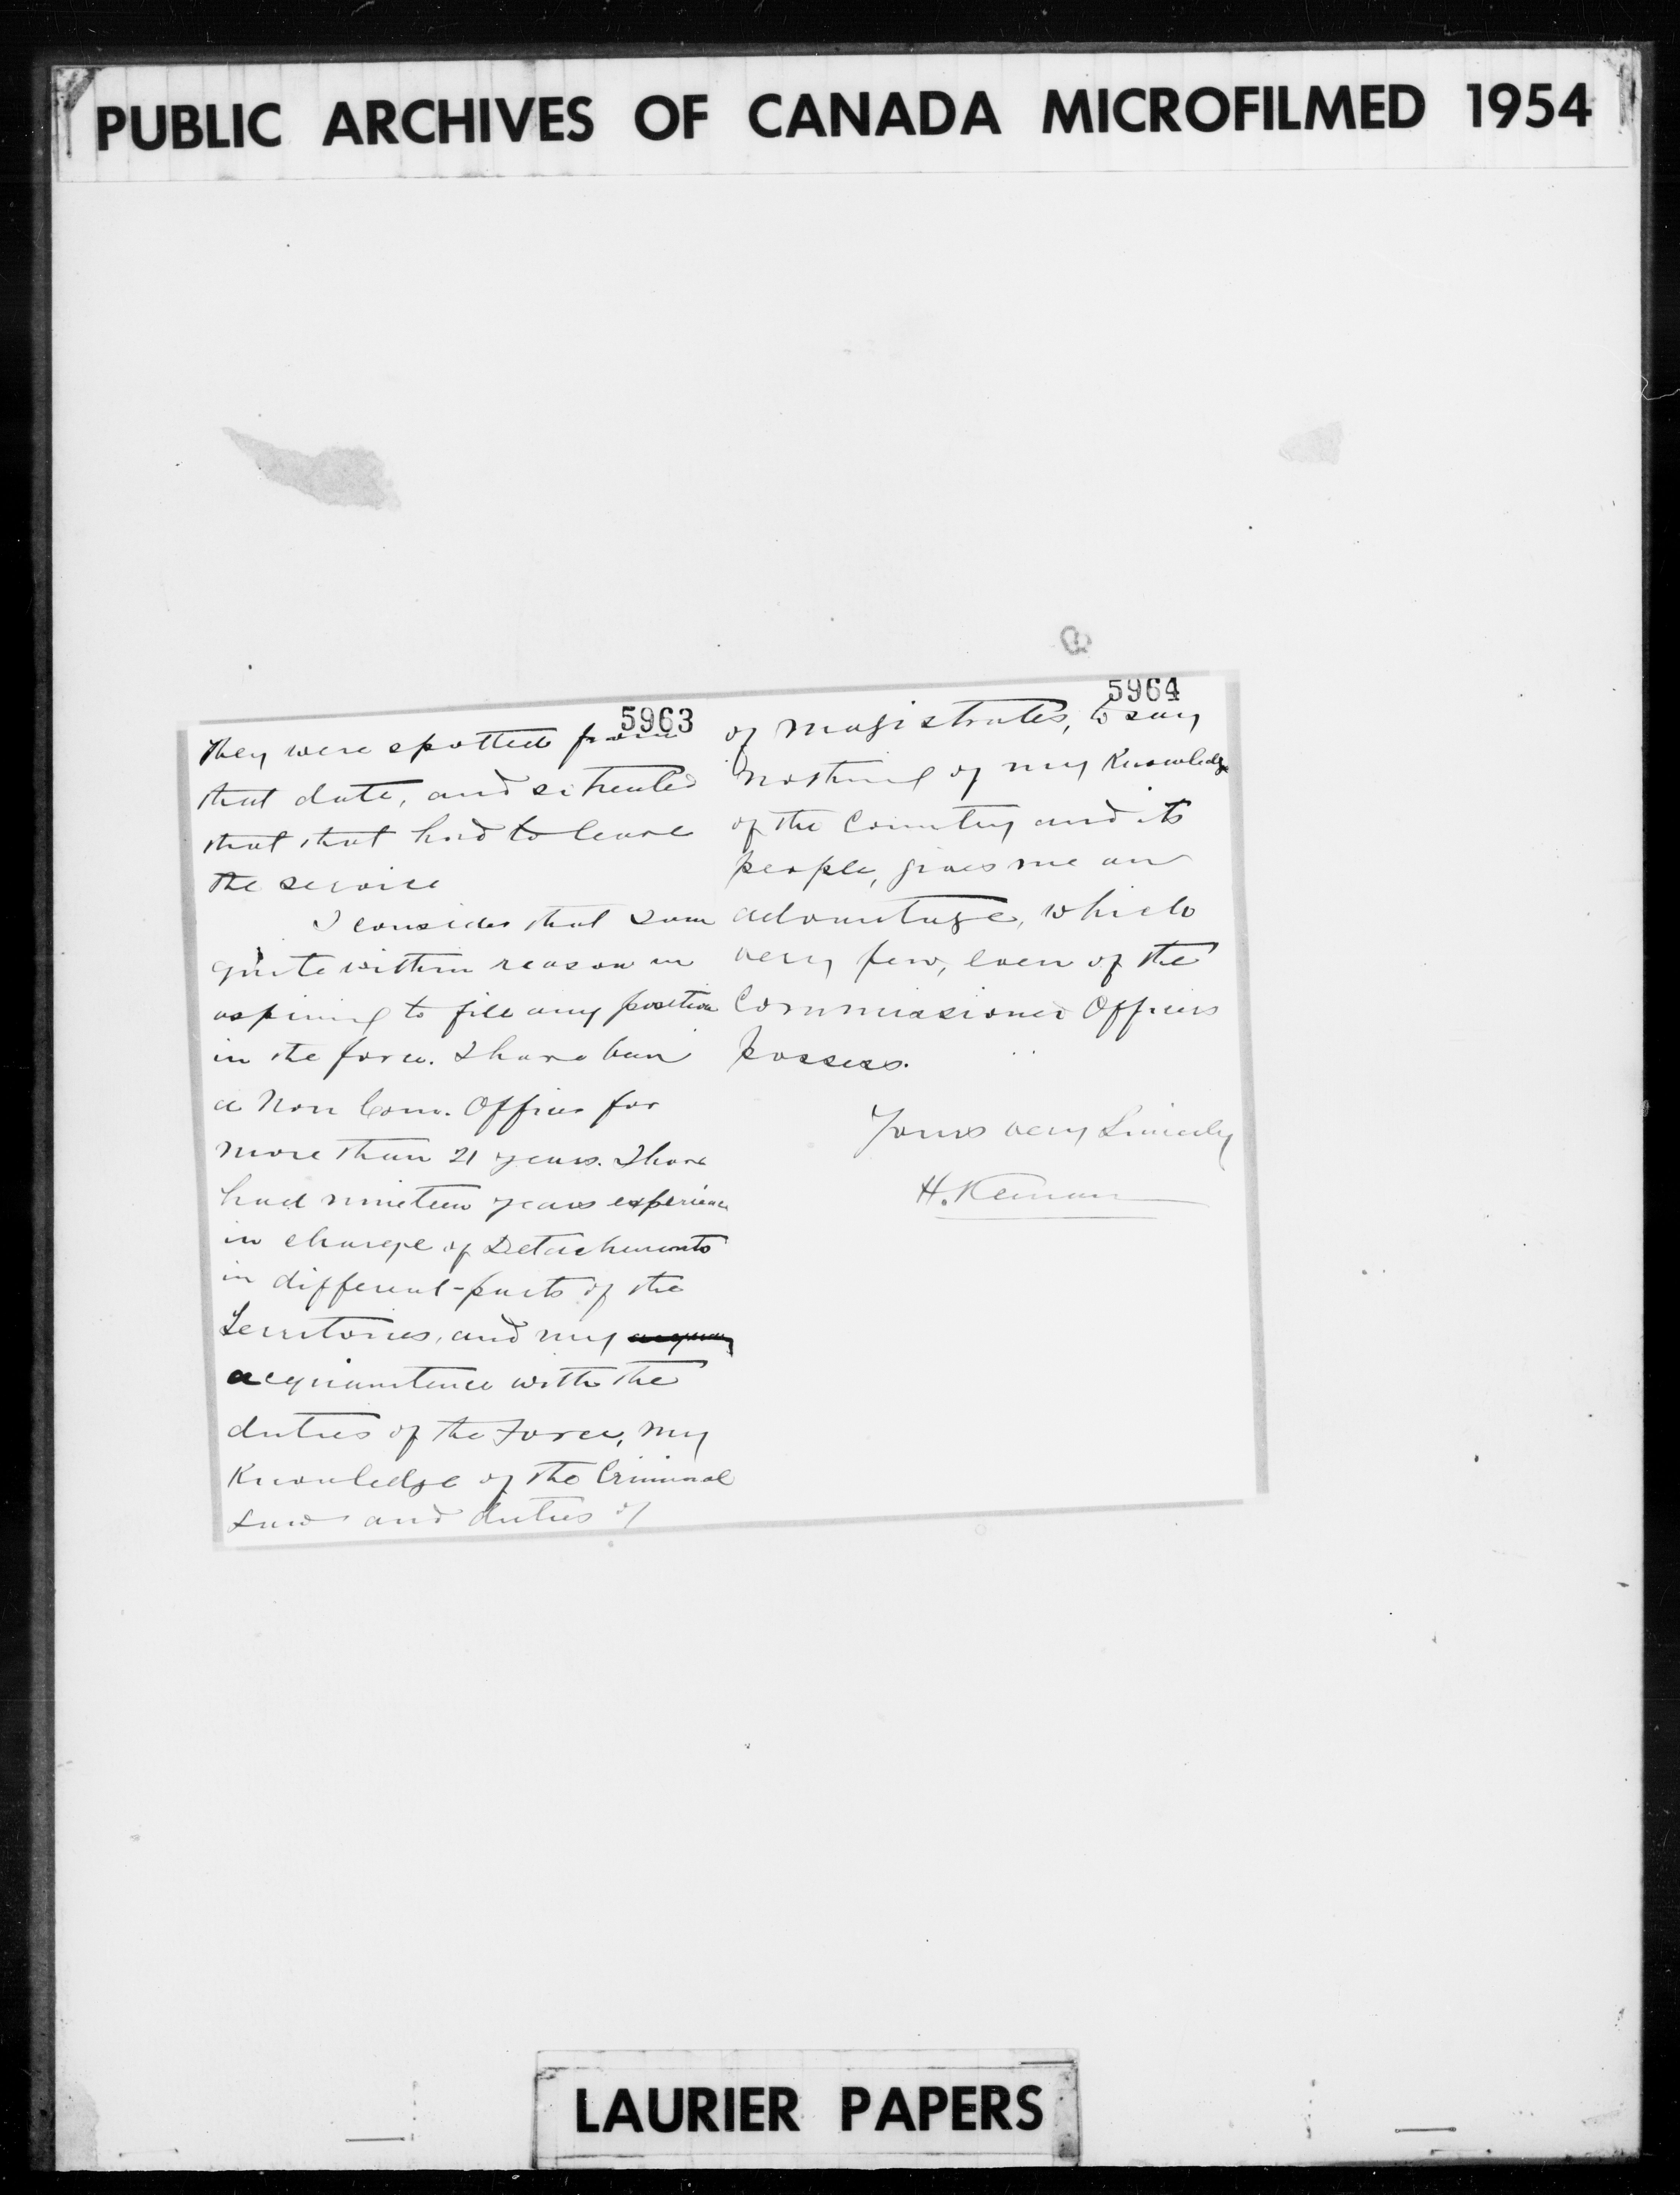 PUBLIC ARCHIVES OF CANADA MICROFILMED 1954
5963
they were spotted from
that date, and so treated
that that had to leave
the service
I consider that I am
quite within reason in
aspiring to fill any position
in the force. I have been
a Non Com. Officer for
more than 21 years. I have
had nineteen years experience
in charge of Detachments
in different parts of the
Territories, and my
acquaintence with the
duties of the Force, my
Knowledge of the Criminal
Law and duties of
5964
of Magistrates, to say
nothing of my Knowledge
of the Country and its
people, gives me an
advantage, which
very few, even of the
Commissioned Officers
possess.
Yours very Sincerely
H. Keenan
LAURIER PAPERS